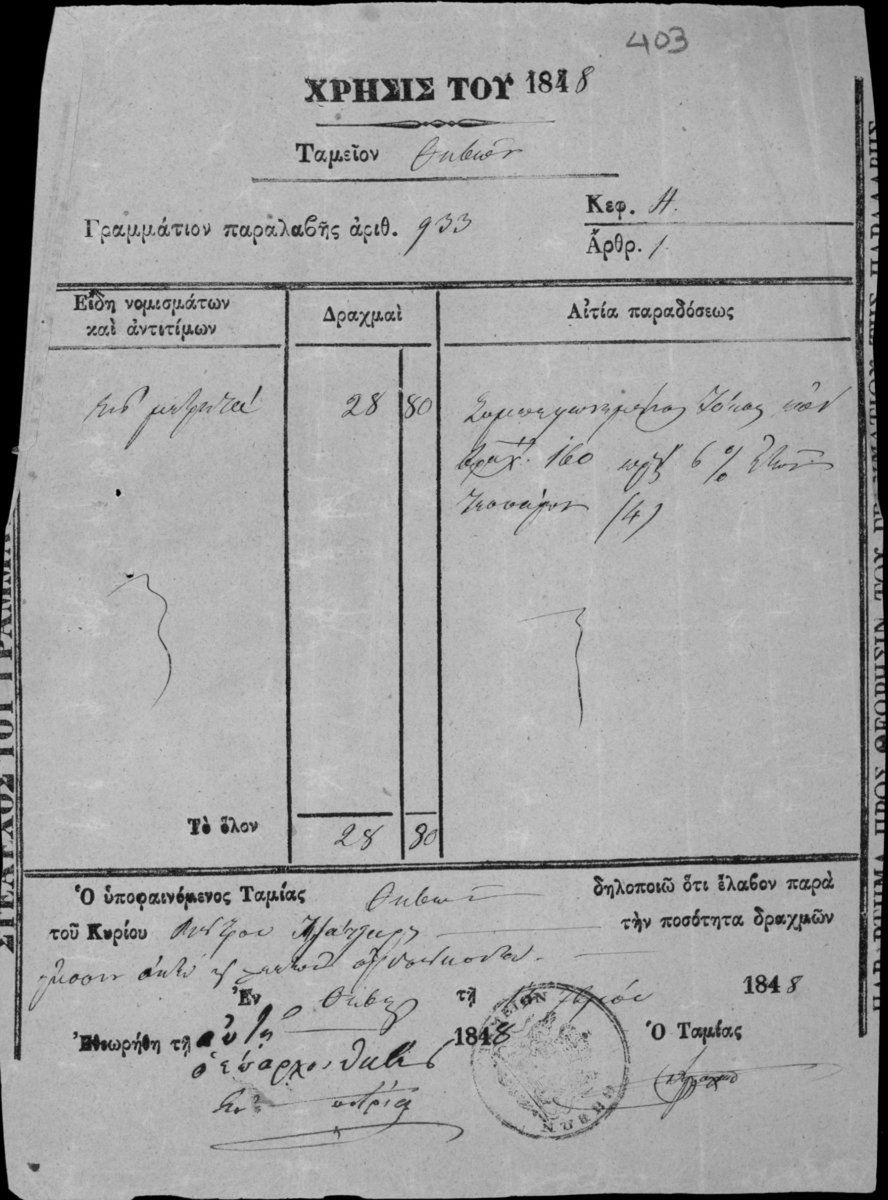 403
ΧΡΗΣΙΣ ΤΟΥ 1848
Ταμεῖον Θηβῶν
Γραμμάτιον παραλαβῆς ἀριθ. 933
Κεφ. Η.
Ἄρθρ. 1.
Εἴδη νομισμάτων
καὶ ἀντιτίμων
Δραχμαὶ
Αἰτία παραδόσεως
μετρητά
28 80
τόκος
δραχ. 160 πρὸς 6 % ἐτῶν
τεσσάρων (4)
Τὸ ὅλον
28 80
Ὁ ὑποφαινόμενος Ταμίας Θηβῶν δηλοποιῶ ὅτι ἔλαβον παρὰ
τοῦ Κυρίου τὴν ποσότητα δραχμῶν
εἴκοσι ὀκτώ λεπτῶν ὀγδοήκοντα.
Ἐν Θήβαις τῇ 1848
Ἐθεωρήθη τῇ 1848
Ὁ Ταμίας
ὁ ἔπαρχος Θηβῶν
ΤΑΜΕΙΟΝ ΘΗΒΩΝ
ΣΤΕΛΕΧΟΣ ΤΟΥ ΓΡΑΜΜΑ
ΠΑΡΑΡΤΗΜΑ ΠΡΟΣ ΘΕΩΡΗΣΙΝ ΤΟΥ ΓΡΑΜΜΑΤΙΟΥ ΤΗΣ ΠΑΡΑΛΑΒΗΣ